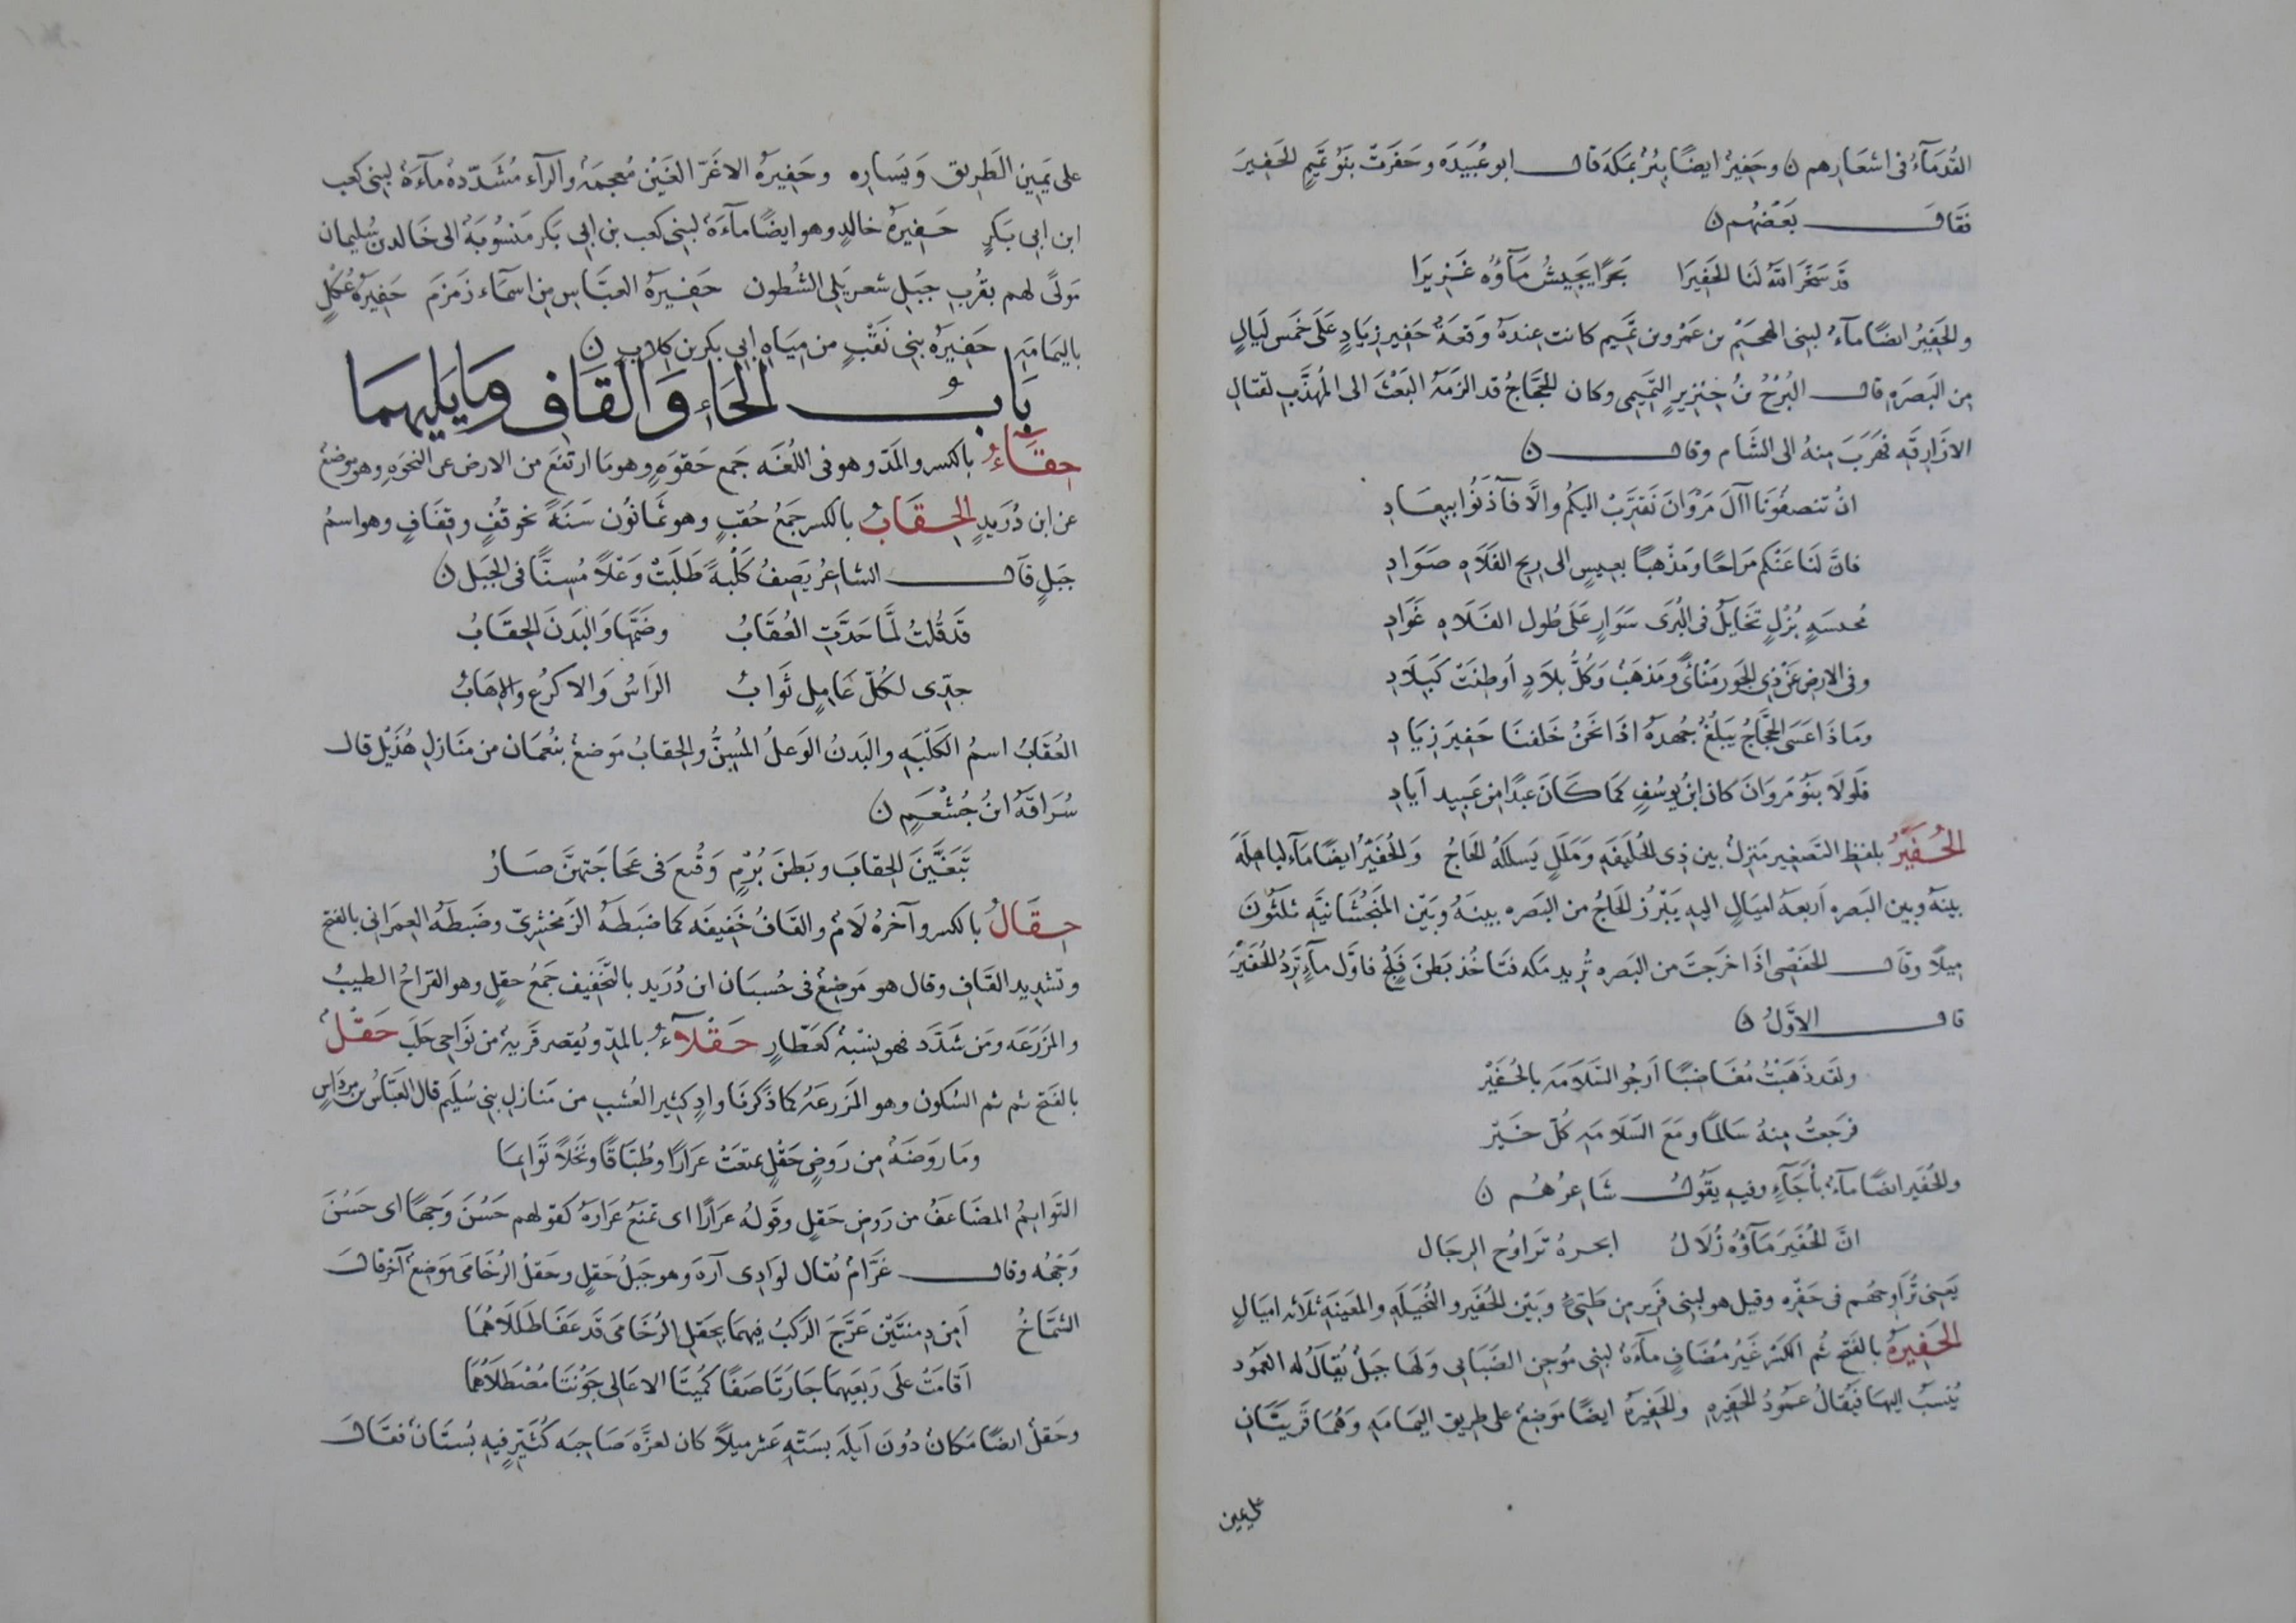 القُدَمَآءُ فى اشعَارِهم ن وحَفِيرٌ ايضًا بِئرٌ بمكة قال ابو عُبَيدَه وحَفَرَتْ بَنُو تَمِيمٍ الحَفِيرَ
فقَال بَعضُهُم ن
قَد سَخَّرَ اللّٰهُ لَنَا الحَفِيرَا بَحرًا يَجِيشُ مَآؤُه غَزِيرَا
والحَفِيرُ ايضًا مآءٌ لبنى الهجَيْم بن عَمْرو بن تَمِيم كانت عِندَهُ وَقعَةٌ حَفِير زِيَادٍ عَلَى خَمس لَيَالٍ
مِن البَصرَهِ قال البُرْجُ بنُ خِنْزِيرٍ التَّمِيمِى وكان الحَجَّاجُ قد الزَمَهُ البَعْثَ الى المُهَذَّبِ لقتالِ
الازَارِقَهِ فهَرَبَ مِنهُ الى الشَام وقال ن
انْ تنصفُونَا اآلَ مَرْوَانَ نَقتَرِبْ اليكُم والَّا فآذَنُوا ببِعَادِ
فانَّ لَنَا عَنْكم مَرَاحًا ومَذْهبًا بعِيسٍ الى رِيحِ الفَلَاهِ صَوَادِ
مُخيسَهٍ بُزْلٍ تَخَايَلُ فى البُرَى سَوَارٍ عَلَى طُولِ الفَلَاهِ غَوَادِ
وفى الارضِ عَنْ ذِى الجَورِ مَنْأًى ومَذهَبٌ وَكُلُّ بلَادٍ أوطِنَتْ كَبِلَادِ
ومَاذَا عَسَى الحَجَّاجُ يَبلُغُ جُهدَهُ اذَا نَحْنُ خَلفنَا حَفِيرَ زِيَادِ
فَلَولَا بَنُو مَروَانَ كان ابنُ يوسُفٍ كمَا كَانَ عَبدًا مِن عَبِيدِ أَيَادِ
الحُفَيْرُ بلفظِ التَصغِير مَنزِلٌ بين ذِى الحُلَيفَهِ ومَلَلٍ يَسلكُهُ الحَاجُ والحُفَيْرُ ايضًا مَآء لباهِلَه
بينَهُ وبين البَصرهِ أربعَهُ اميَالٍ اليهِ يَبْرُز الحَاجُ من البَصره بينَهُ وبَيْن المَنْجَشَانيَّهِ ثلثُونَ
مِيلًا وقال الحَفْصِى اذَا خرَجتَ من البَصره تُريد مَكه فتَاخُذ بَطنَ فَلْجٍ فاوَّل مآءٍ تَرِدُ الحُفَيْرَ
قال الاوَّلُ ن
ولقَد ذَهَبْتُ مُغَاضِبًا أرجُو السَّلَامَهَ بالحُفَيْرْ
فرَجعتُ مِنهُ سَالمًا ومَعَ السَّلَامَهِ كُلّ خَيْر
والحُفَير ايضًا مآءٌ بأجَآءٍ وفيهِ يقُولُ شَاعِرُهُم ن
انَّ الحُفَيرَ مَآؤُه زُلَالُ ابحرهُ تَرَاوُح الرجَال
يَعنِى تُرَاوِحهُم فى حَفْرِه وقيل هو لبنى فَرير مِن طَيِّئٍ وبَيْن الحُفَير والنُخَيلَهِ والمَعينَهِ ثلَاثه اميَالٍ
الحَفِيرَهُ بالفَتحِ ثُم الكَسْر غَيرُ مُضَافٍ مآءَهٌ لبنِى مُوجِنِ الضَبَابى ولَهَا جبَلٌ يُقالُ له العمُود
يُنسَبُ اليهَا فيُقالُ عمُودُ الحَفيرهِ والحَفِيرَهُ ايضًا مَوضِعٌ على طرِيق اليمَامَهِ وهُمَا قَريَتَانِ
على يمين
على يَمِينِ الطَرِيق وَيَسَارِه وحَفِيرَهُ الاغَرّ الغَيْن مُعجمَهٌ والرآء مُشَدّدهٌ مآءَهٌ لبنى كعب
ابن ابى بَكرٍ حَفِيرَهُ خالدٍ وهو ايضًا مآءَهٌ لبنى كعب بن ابى بَكر مَنسُوبَهٌ الى خَالد بن سُليمان
مَولًى لهم بقُربِ جبَلِ شعر يَلى الشُطون حَفِيرَهُ العبَّاسِ مِن اسمَآء زمزَمَ حَفِيرَهُ عُكلٍ
باليمَامَهِ حَفِيرَهُ بنى نَقْبٍ من ميَاهِ ابى بكر بن كلابٍ ن
بَابُ الحَاءِ وَالقَافِ ومَا يَليهِمَا
حِقَاءٌ بالكسر والمَدّ وهو فى اللُغَه جَمع حَقوَهٍ وهو مَا ارتفَعَ من الارض عن النجوَهِ وهو مَوضِعٌ
عن ابن دُرَيدٍ الحِقَابُ بالكسر جَمعُ حُقبٍ وهو ثمَانُون سَنَهً نحو قُفٍّ وقِفَافٍ وهو اسمُ
جبَلٍ قال الشاعُر يَصِفُ كَلْبَهً طَلَبَتْ وَعْلًا مُسِنًّا فى الجبَل ن
قَد قُلتُ لَمَّا جَدَّتِ العُقَابُ وضَمَّهَا وَالبَدَنَ الحِقَابُ
جِدِّى لكُلّ عَامِلٍ ثَوَابُ الرَاسُ وَالاكرُع والإهَابُ
العُقَابُ اسمُ الكَلْبَهِ والبَدنُ الوَعلُ المُسِنُّ والحِقابُ مَوضعٌ بنُعمَان من مَنَازلِ هُذَيْل قال
سُرَاقَهُ ابنُ جُشْعَمٍ ن
تَبَغَّيْنَ الحِقابَ وبَطنَ بُرْمٍ وَقُنِعَ فى عَجَاجَتهنَّ صَارُ
حِقَالُ بالكسر وآخرُهُ لَامٌ والقَافُ خَفِيفَه كما ضبَطهُ الزَمخشرِىّ وضَبطَهُ العِمرَانى بالفتح
وتشدِيد القَافِ وقال هو مَوضِعٌ فى حُسبَان ابن دُرَيد بالتّخفِيف جَمعُ حقلٍ وهو القرَاحُ الطيبُ
والمَزرَعَه ومَن شَدَّد فهو نِسْبَهٌ كعَطّارٍ حَقْلَآءُ بالمدّ ويُقصَر قَريهٌ من نَوَاحِى حَلَبَ حَقْلٌ
بالفَتح ثم ثم السُكون وهو المَزرعَهُ كما ذَكرنَا وادٍ كثير العُشبِ من مَنازلِ بنِى سُلَيم قال العَبَّاسُ بن مِردَاسٍ
ومَا روضَهٌ مِن رَوضِ حَقْلٍ تمتعَتْ عرَارًا وطُبَّاقًا ونَخلًا تَوَائِمَا
التَوَايمُ المضَاعَفُ من رَوض حَقلٍ وقولهُ عرَارًا اى تمتعُ عرَارهُ كقولهم حَسُنَ وَجهًا اى حَسُنَ
وَجْهُهُ وقال عَرَّامٌ يُقال لوادِى آرة وهو جبَلٌ حَقلٌ وحَقلُ الرُخَامَى مَوضِعٌ آخر قال
الشمَّاخُ أمِن دِمنتَيْن عَرَّجَ الرَكبُ فِيهمَا بحَقلِ الرُخَامَى قَد عَفَا طَلَلَاهُمَا
أقامَتْ علَى رَبعَيهمَا جَارَتَا صَفًا كُمَيتَا الاعَالى جَوْنتَا مُصْطَلَاهُمَا
وحَقلٌ ايضًا مَكانٌ دُونَ أيلَهَ بستَّهِ عَشر ميلًا كان لعزَّهَ صَاحِبَه كُثَيّر فيهِ بُستَانٌ فقال